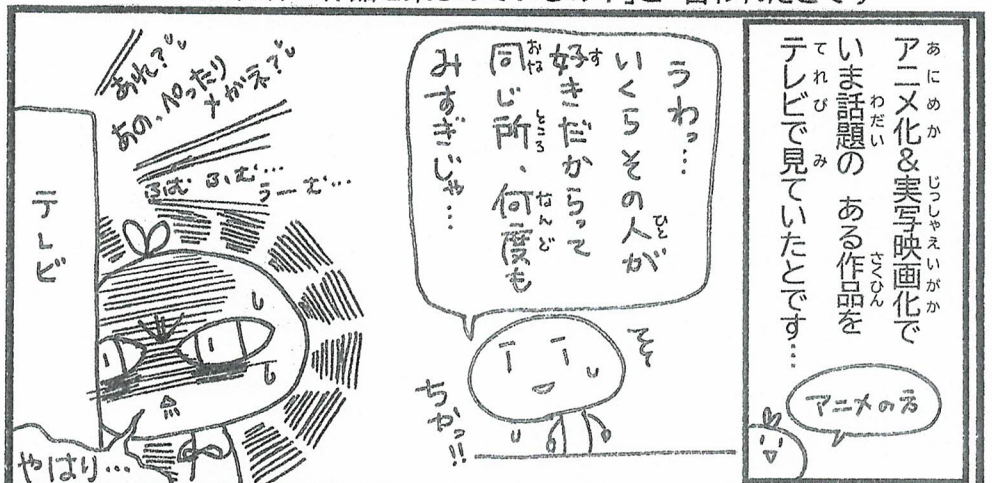 アニメ化&実写映画化で
いま話題の ある作品を
テレビで見ていたとです…
アニメの方
うわっ…
いくらその人が
好きだからって
同じ所、何度も
みすぎじゃ…
ちゃっ!!
あれ?
あの、ぺったり
メガネ?
ふむふむ…
うーむ…
テレビ
やはり…